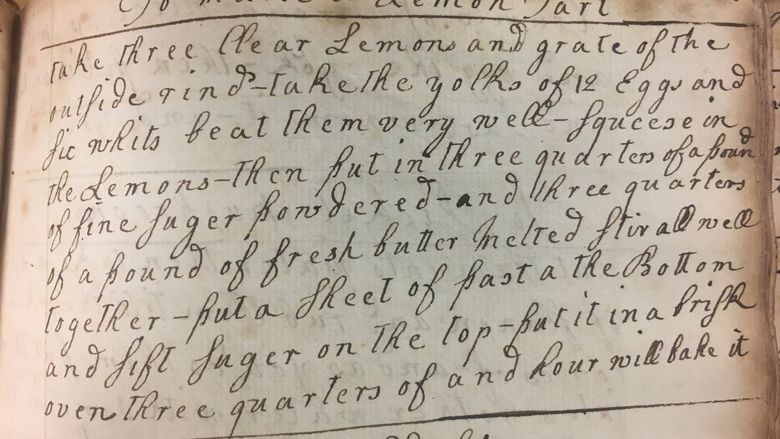 To make a Lemon Tart
take three Clear Lemons and grate of the
outside rind-take the yolks of 12 Eggs and
six whits beat them very well-squeese in
the Lemons-then put in three quarters of a pound
of fine suger powdered-and three quarters
of a pound of fresh butter Melted stir all well
together-put a sheet of past a the Bottom
and sift suger on the top-put it in a brisk
oven three quarters of and hour will bake it